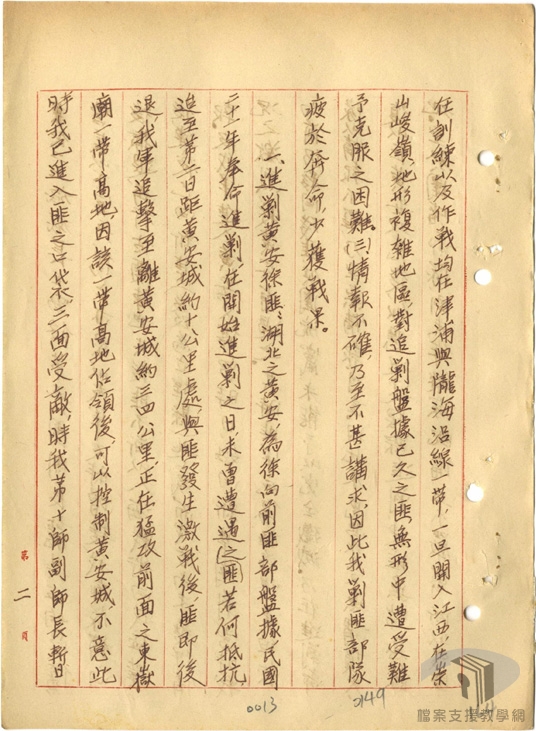 在訓練以及作戰均在津浦與隴海沿線一帶，一旦開入江西，在崇
山峻嶺，地形複雜地區，對追剿盤據已久之匪無形中遭受難
予克服之困難。(三)情報不確，乃至不甚講求，因此我剿匪部隊
疲於奔命，少獲戰果。
一、進剿黃安徐匪：湖北之黃安，為徐向前匪部盤據，民國
二十一年奉命進剿，在開始進剿之日未曾遭遇之匪若何抵抗，
追至第二日距黃安城約十公里處，與匪發生激戰後，匪即後
退，我軍追擊至離黃安城約三四公里，正在猛攻前面之東嶽
廟一帶高地，因該一帶高地佔領後，可以控制黃安城，不意此
時我已進入匪之口袋，三面受敵，時我第十師副師長
第二頁
0013
0149
檔案支援教學網